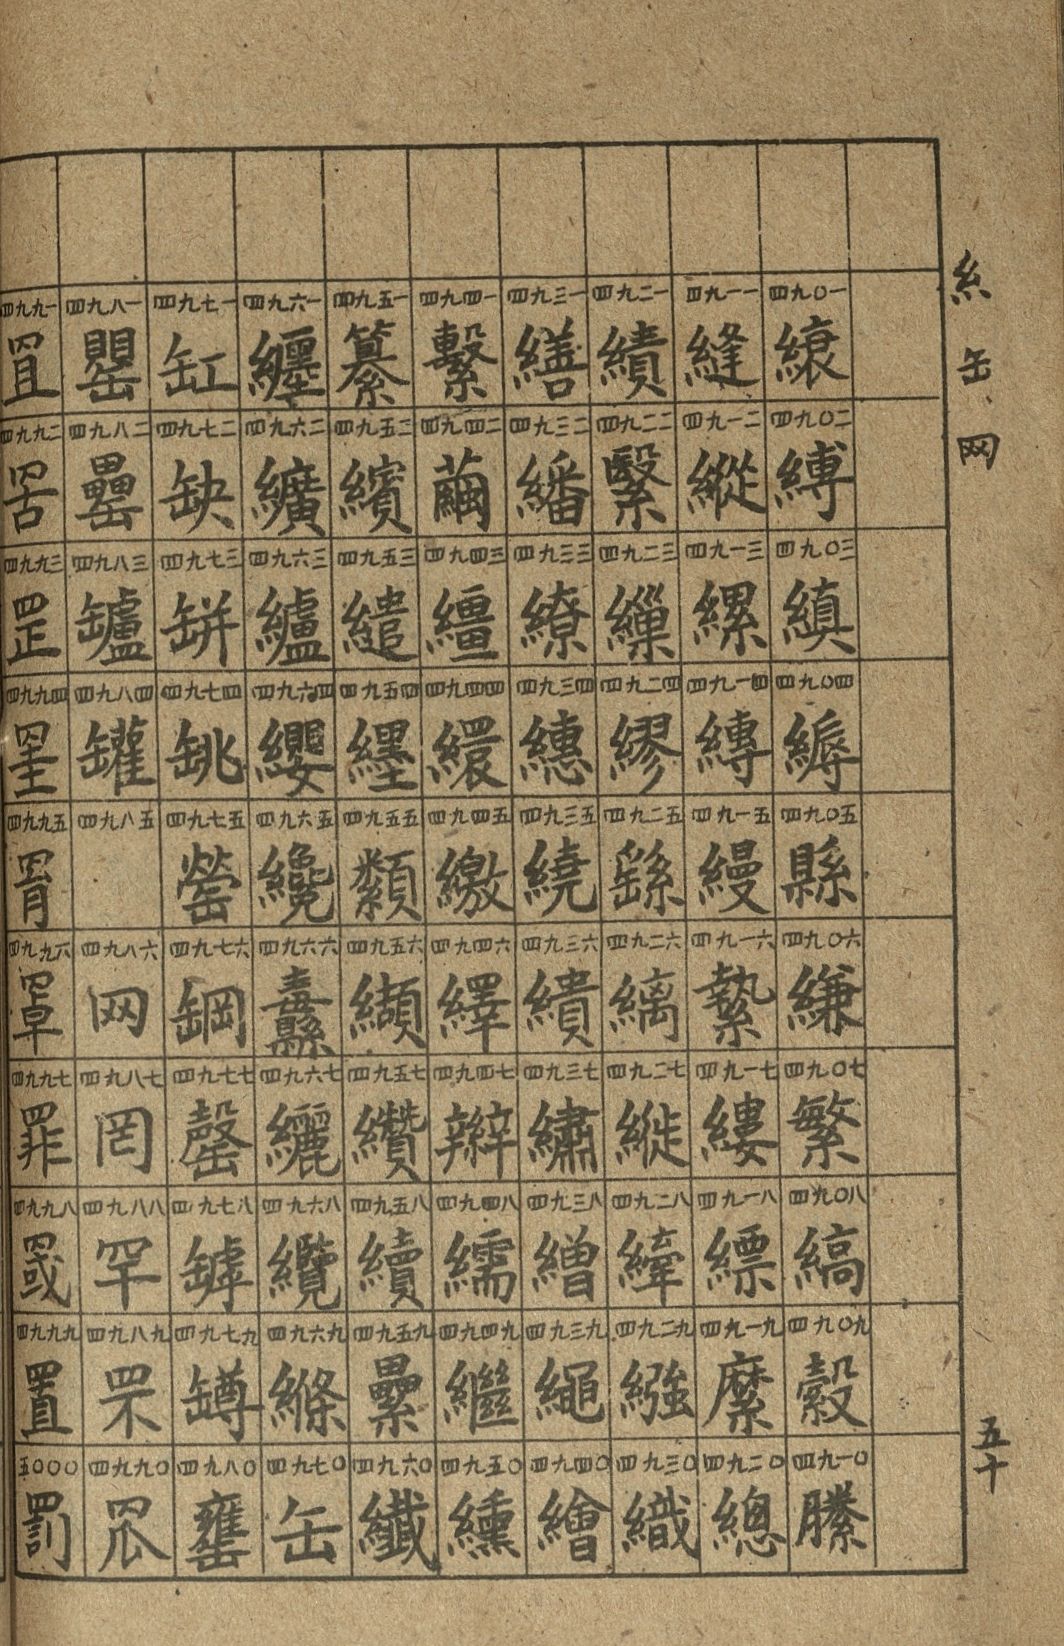 糸 缶 网
四九〇一 縗
四九〇二 縛
四九〇三 縝
四九〇四 縟
四九〇五 縣
四九〇六 縑
四九〇七 繁
四九〇八 縞
四九〇九 縠
四九一〇 縢
四九一一 縫
四九一二 縱
四九一三 縲
四九一四 縳
四九一五 縵
四九一六 縶
四九一七 縷
四九一八 縹
四九一九 縻
四九二〇 總
四九二一 績
四九二二 繄
四九二三 繅
四九二四 繆
四九二五 繇
四九二六 縭
四九二七 縰
四九二八 縴
四九二九 繦
四九三〇 織
四九三一 繕
四九三二 繙
四九三三 繚
四九三四 繐
四九三五 繞
四九三六 繢
四九三七 繡
四九三八 繒
四九三九 繩
四九四〇 繪
四九四一 繫
四九四二 繭
四九四三 繮
四九四四 繯
四九四五 繳
四九四六 繹
四九四七 辮
四九四八 繻
四九四九 繼
四九五〇 纁
四九五一 纂
四九五二 繽
四九五三 繾
四九五四 纆
四九五五 纇
四九五六 纈
四九五七 纘
四九五八 續
四九五九 纍
四九六〇 纖
四九六一 纏
四九六二 纊
四九六三 纑
四九六四 纓
四九六五 纔
四九六六 纛
四九六七 纚
四九六八 纜
四九六九 縧
四九七〇 缶
四九七一 缸
四九七二 缺
四九七三 缾
四九七四
四九七五 罃
四九七六 罁
四九七七 罄
四九七八 罅
四九七九 罇
四九八〇 罋
四九八一 罌
四九八二 罍
四九八三 罏
四九八四 罐
四九八五
四九八六 网
四九八七 罔
四九八八 罕
四九八九 罘
四九九〇 罛
四九九一 罝
四九九二 罟
四九九三 罡
四九九四 罣
四九九五 罥
四九九六 罩
四九九七 罪
四九九八 罭
四九九九 置
五〇〇〇 罰
五十